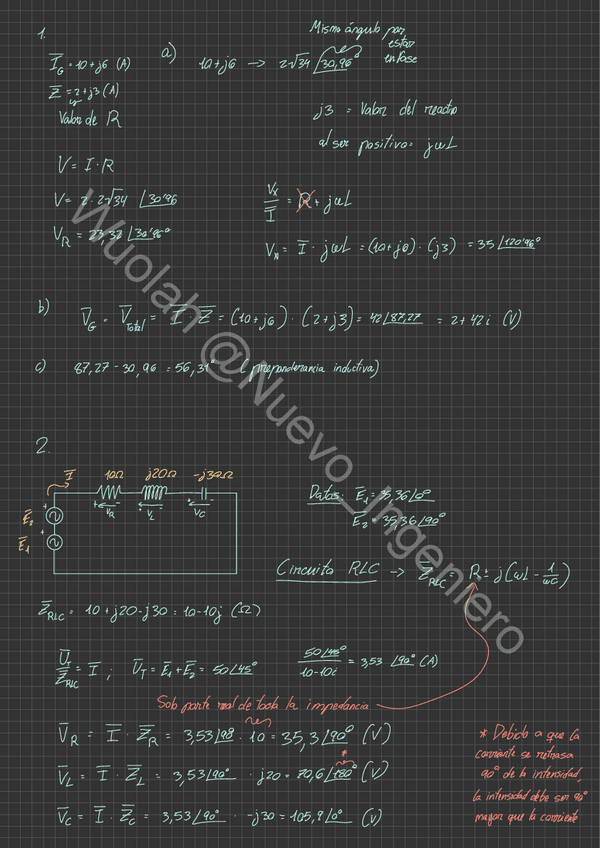 1.
I̅G = 10+j6 (A)
Z̅ = 2+j3 (A)
Valor de R
a) 10+j6 → 2√34 ∠30,96°
Mismo ángulo por
estar
en fase
j3 = Valor del
al ser positivo = jωL
V = I · R
V = 2 · 2√34 ∠30'96
VR = 23,32 ∠30'96°
Vx/I̅ = R + jωL
Vx = I̅ · jωL = (10+j6) · (j3) = 35 ∠120'96°
b) V̅G = V̅Total = I̅ Z̅ = (10+j6) · (2+j3) = 42 ∠87,27 = 2+42i (V)
c) 87,27 - 30,96 = 56,31° (preponderancia inductiva)
2.
I̅ 10Ω j20Ω -j30Ω
+ VR - + VL - + VC -
E̅2
E̅1
Datos: E̅1 = 35,36 ∠0°
E̅2 = 35,36 ∠90°
Circuito RLC → Z̅RLC = R + j(ωL - 1/ωC)
Z̅RLC = 10+j20-j30 = 10-10j (Ω)
U̅T/Z̅RLC = I̅ ; U̅T = E̅1+E̅2 = 50 ∠45° 50∠45°/10-10i = 3,53 ∠90° (A)
Sob parte real de toda la impedancia
V̅R = I̅ · Z̅R = 3,53 ∠98 · 10 = 35,3 ∠90° (V)
V̅L = I̅ · Z̅L = 3,53 ∠90° · j20 = 70,6 ∠180° (V)
*
V̅C = I̅ · Z̅C = 3,53 ∠90° · -j30 = 105,9 ∠0° (V)
* Debido a que la
corriente se retrasa
90° de la intensidad,
la intensidad debe ser 90°
mayor que la corriente
Wuolah @Nuevo_Ingeniero